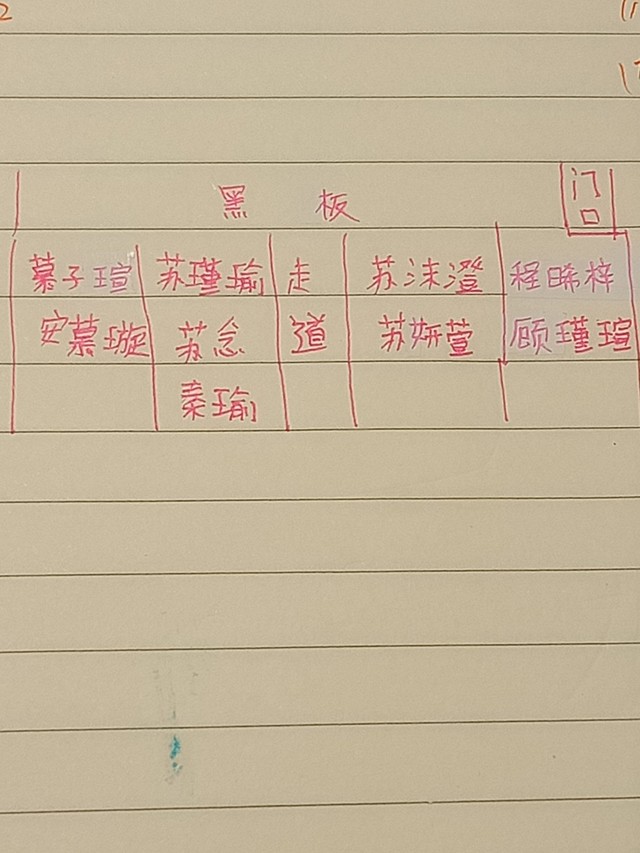 2
黑 板 门口
慕子瑄 苏瑾瑜 走 苏沫澄 程晞梓
安慕璇 苏念 道 苏妍萱 顾瑾瑄
秦瑜